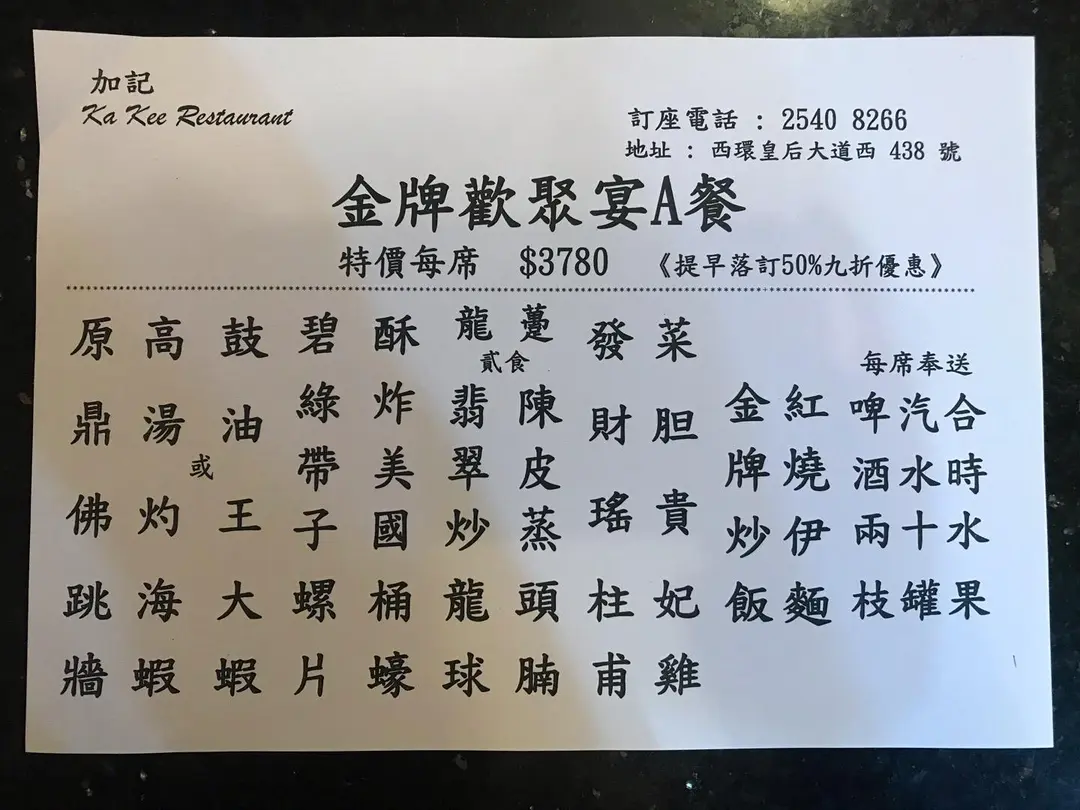 加記
Ka Kee Restaurant
訂座電話 : 2540 8266
地址 : 西環皇后大道西 438 號
金牌歡聚宴A餐
特價每席 $3780 《提早落訂50%九折優惠》
原鼎佛跳牆
高湯灼海蝦
或
鼓油王大蝦
碧綠帶子螺片
酥炸美國桶蠔
龍躉
貳食
翡翠炒龍球
陳皮蒸頭腩
發財瑤柱甫
菜胆貴妃雞
金牌炒飯
紅燒伊麵
每席奉送
啤酒兩枝
汽水十罐
合時水果